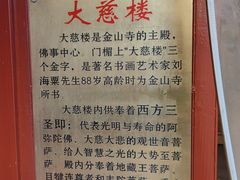 大慈楼
大慈楼是金山寺的主殿,
佛事中心。门楣上"大慈楼"三
个金字,是著名书画艺术家刘
海粟先生88岁高龄时为金山寺
所书。
大慈楼内供奉着西方三
圣即:代表光明与寿命的阿
弥陀佛、大慈大悲的观世音菩
萨、给人智慧之光的大势至菩
萨。殿内分奉着地藏王菩萨、
目犍连尊者和韦陀菩萨